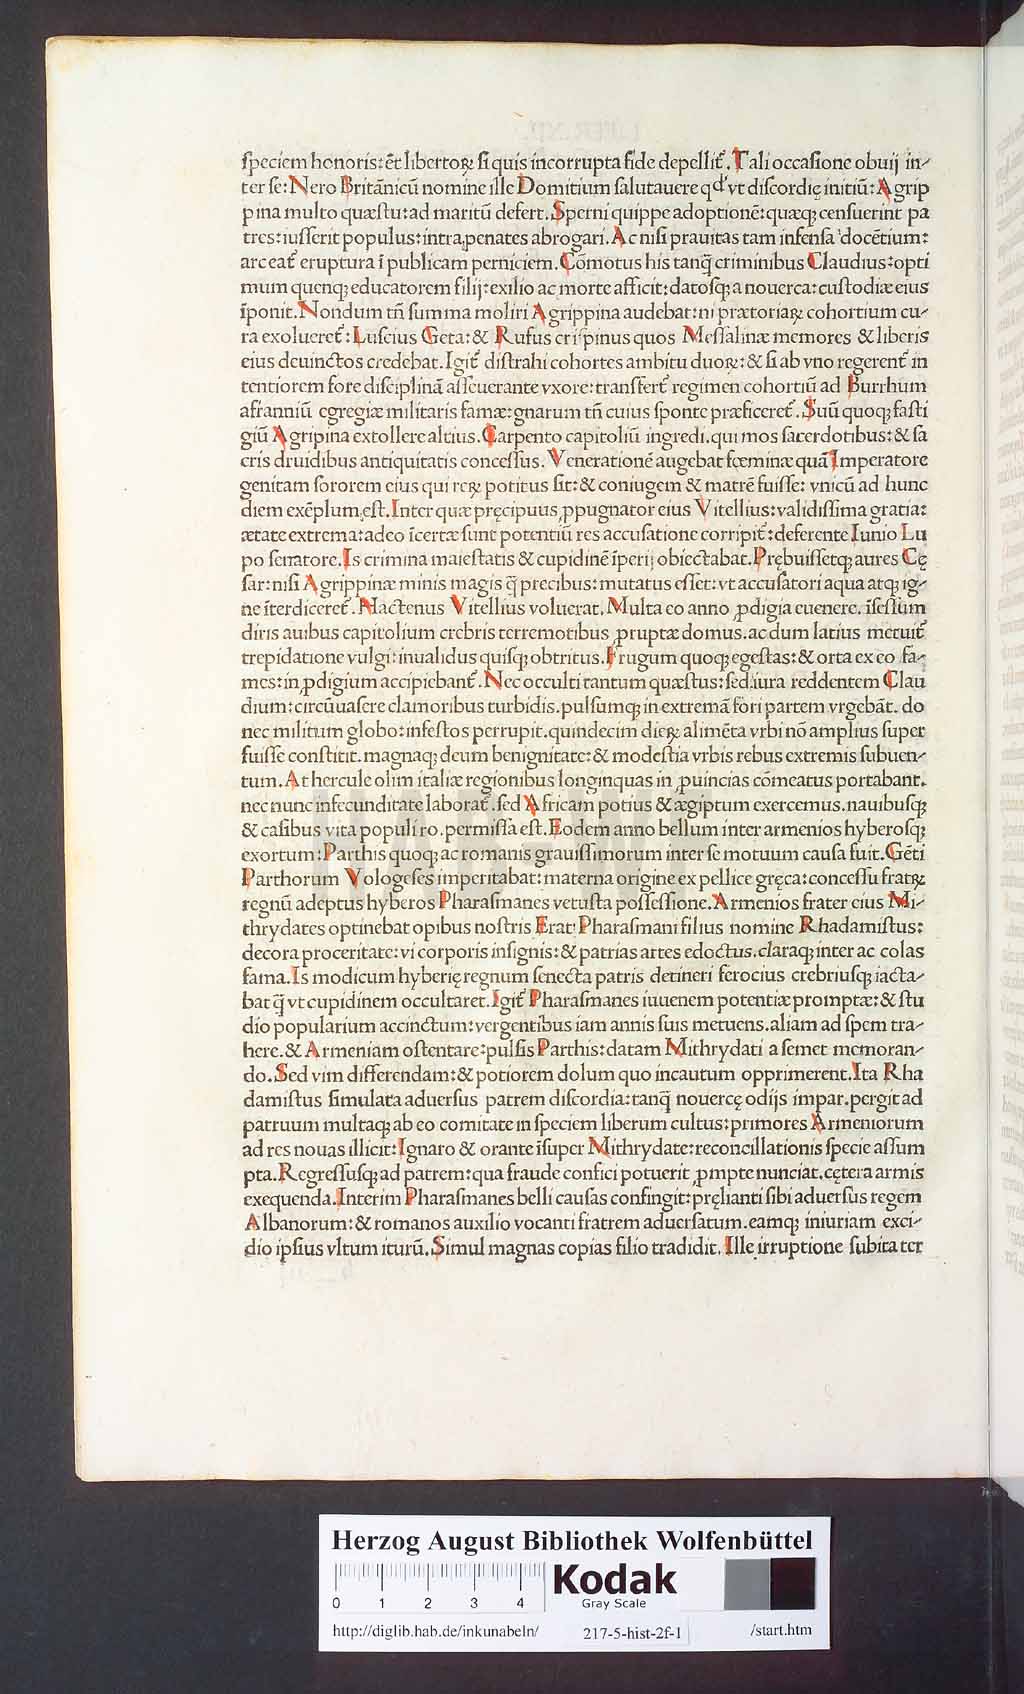 ſpeciem honoris: ēt libertoꝝ ſi quis incorrupta fide depellit᷑. Tali occaſione obuij in-
ter ſe: Nero Britānicū nomine ille Domitium ſalutauere qđ vt diſcordię initiū: Agrip
pina multo quæſtu: ad maritū defert. Sperni quippe adoptionē: quæqꝫ cenſuerint pa
tres: iuſſerit populus: intra penates abrogari. Ac niſi prauitas tam infenſa docētium:
arceat᷑ eruptura ī publicam perniciem. Cōmotus his tanq̄ criminibus Claudius: opti
mum quenqꝫ educatorem filij: exilio ac morte afficit: datoſqꝫ a nouerca: cuſtodiæ eius
īponit. Nondum tn̄ ſumma moliri Agrippina audebat: ni prætoriaꝝ cohortium cu-
ra exolueret᷑: Luſcius Geta: & Rufus criſpinus quos Meſſalinæ memores & liberis
eius deuinctos credebat. Igit᷑ diſtrahi cohortes ambitu duoꝝ: & ſi ab vno regerent᷑ in
tentiorem fore diſciplinā aſſeuerante vxore: tranſfert᷑ regimen cohortiū ad Burrhum
afranniū egregiæ militaris famæ: gnarum tn̄ cuius ſponte præficeret᷑. Suū quoqꝫ faſti
giū Agripina extollere altius. Carpento capitoliū ingredi. qui mos ſacerdotibus: & ſa
cris druidibus antiquitatis conceſſus. Venerationē augebat fœminæ quā Imperatore
genitam ſororem eius qui reꝝ potitus ſit: & coniugem & matrē fuiſſe: vnicū ad hunc
diem exēplum eſt. Inter quæ pręcipuus ꝓpugnator eius Vitellius: validiſſima gratia:
ætate extrema: adeo īcertæ ſunt potentiū res accuſatione corripit᷑: deferente Iunio Lu
po ſenatore. Is crimina maieſtatis & cupidinē īperij obiectabat. Prębuiſſetqꝫ aures Cę
ſar: niſi Agrippinæ minis magis q̄ precibus: mutatus eſſet: vt accuſatori aqua atqꝫ ig-
ne īterdiceret᷑. Hactenus Vitellius voluerat. Multa eo anno ꝓdigia euenere. īſeſſum
diris auibus capitolium crebris terremotibus ꝓruptæ domus. ac dum latius metuit᷑
trepidatione vulgi: inualidus quiſqꝫ obtritus. Frugum quoqꝫ egeſtas: & orta ex eo fa-
mes: in ꝓdigium accipiebant᷑. Nec occulti tantum quæſtus: ſed iura reddentem Clau
dium: circūuaſere clamoribus turbidis. pulſumqꝫ in extremā fori partem vrgebāt. do
nec militum globo: infeſtos perrupit. quindecim dieꝝ alimēta vrbi nō amplius ſuper
fuiſſe conſtitit. magnaqꝫ deum benignitate: & modeſtia vrbis rebus extremis ſubuen-
tum. At hercule olim italiæ regionibus longinquas in ꝓuincias cōmeatus portabant.
nec nunc infecunditate laborat᷑. ſed Africam potius & ægiptum exercemus. nauibuſqꝫ
& caſibus vita populi ro. permiſſa eſt. Eodem anno bellum inter armenios hyberoſqꝫ
exortum: Parthis quoqꝫ ac romanis grauiſſimorum inter ſe motuum cauſa fuit. Gēti
Parthorum Vologeſes imperitabat: materna origine ex pellice gręca: conceſſu fratꝝ
regnū adeptus hyberos Pharaſmanes vetuſta poſſeſſione. Armenios frater eius Mi-
thrydates optinebat opibus noſtris Erat Pharaſmani filius nomine Rhadamiſtus:
decora proceritate: vi corporis inſignis: & patrias artes edoctus. claraqꝫ inter ac colas
fama. Is modicum hyberię regnum ſenecta patris detineri ferocius crebriuſqꝫ iacta-
bat q̄ vt cupidinem occultaret. Igit᷑ Pharaſmanes iuuenem potentiæ promptæ: & ſtu
dio popularium accinctum: vergentibus iam annis ſuis metuens. aliam ad ſpem tra-
here. & Armeniam oſtentare: pulſis Parthis: datam Mithrydati a ſemet memoran-
do. Sed vim differendam: & potiorem dolum quo incautum opprimerent. Ita Rha
damiſtus ſimulata aduerſus patrem diſcordia: tanq̄ nouercę odijs impar. pergit ad
patruum multaqꝫ ab eo comitate in ſpeciem liberum cultus: primores Armeniorum
ad res nouas illicit: Ignaro & orante īſuper Mithrydate: reconcillationis ſpecie aſſum
pta. Regreſſuſqꝫ ad patrem: qua fraude confici potuerit ꝓmpte nunciat. cętera armis
exequenda. Interim Pharaſmanes belli cauſas confingit: pręlianti ſibi aduerſus regem
Albanorum: & romanos auxilio vocanti fratrem aduerſatum. eamqꝫ iniuriam exci-
dio ipſius vltum iturū. Simul magnas copias filio tradidit. Ille irruptione ſubita ter
HAB-WF
Herzog August Bibliothek Wolfenbüttel
0 1 2 3 4
Kodak
Gray Scale
http://diglib.hab.de/inkunabeln/ 217-5-hist-2f-1 /start.htm